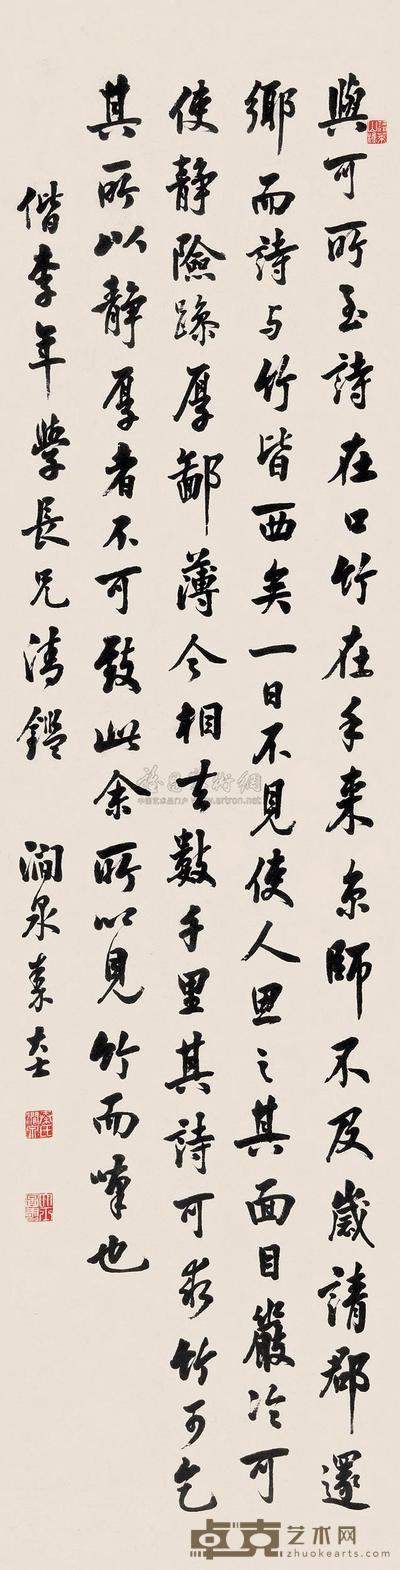 與可所至詩在口竹在手來京師不及歲請郡還
鄉而詩与竹皆西矣一日不見使人思之其面目嚴冷可
使靜險躁厚鄙薄今相去數千里其詩可求竹可乞
其所以靜厚者不可致此余所以見竹而嘆也
偕李年學長兄清鑑 澗泉秦大士
www.artron.net
卓克艺术网
www.zhuokearts.com